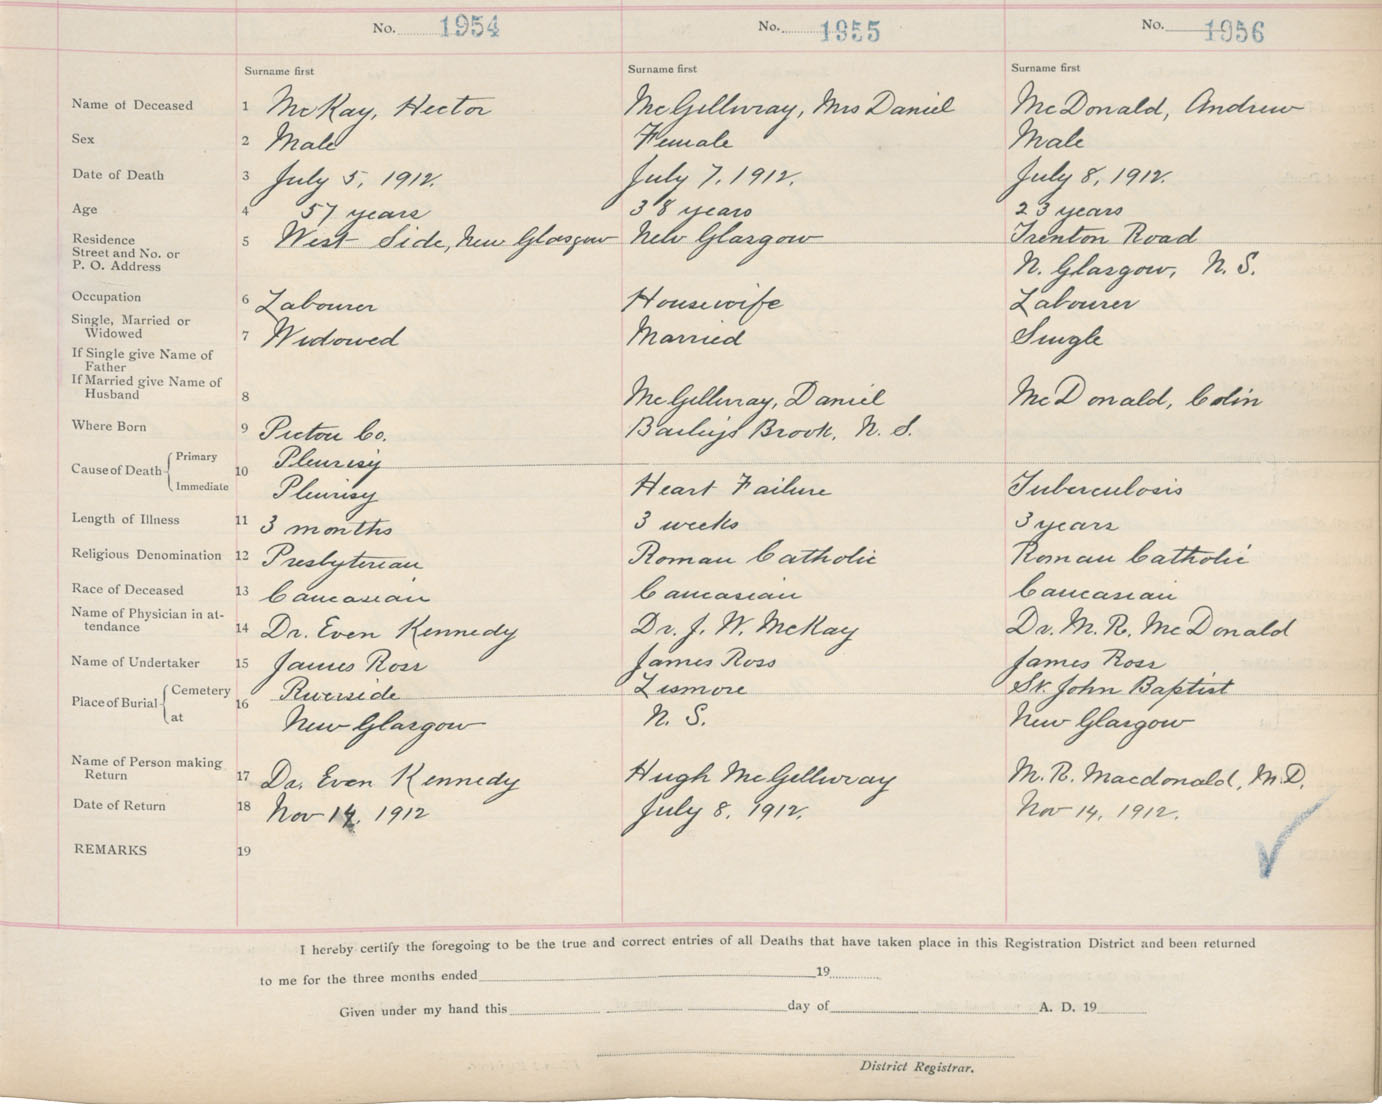 No. 1954 No. 1955 No. 1956
Surname first Surname first Surname first
Name of Deceased 1 McKay, Hector McGillivray, Mrs Daniel McDonald, Andrew
Sex 2 Male Female Male
Date of Death 3 July 5, 1912. July 7, 1912. July 8, 1912.
Age 4 57 years 38 years 23 years
Residence 5 West Side, New Glasgow New Glasgow Trenton Road
Street and No. or
P. O. Address N. Glasgow, N. S.
Occupation 6 Labourer Housewife Labourer
Single, Married or
Widowed 7 Widowed Married Single
If Single give Name of
Father
If Married give Name of
Husband 8 McGillivray, Daniel McDonald, Colin
Where Born 9 Pictou Co. Baileys Brook, N. S.
Cause of Death Primary 10 Pleurisy
Immediate Pleurisy Heart Failure Tuberculosis
Length of Illness 11 3 months 3 weeks 3 years
Religious Denomination 12 Presbyterian Roman Catholic Roman Catholic
Race of Deceased 13 Caucasian Caucasian Caucasian
Name of Physician in at-
tendance 14 Dr. Even Kennedy Dr. J. W. McKay Dr. M. R. McDonald
Name of Undertaker 15 James Ross James Ross James Ross
Place of Burial Cemetery 16 Riverside Lismore St. John Baptist
at New Glasgow N. S. New Glasgow
Name of Person making
Return 17 Dr. Even Kennedy Hugh McGillivray M. R. Macdonald, M.D.
Date of Return 18 Nov 14, 1912 July 8, 1912. Nov 14, 1912.
REMARKS 19
I hereby certify the foregoing to be the true and correct entries of all Deaths that have taken place in this Registration District and been returned
to me for the three months ended 19
Given under my hand this day of A. D. 19
District Registrar.